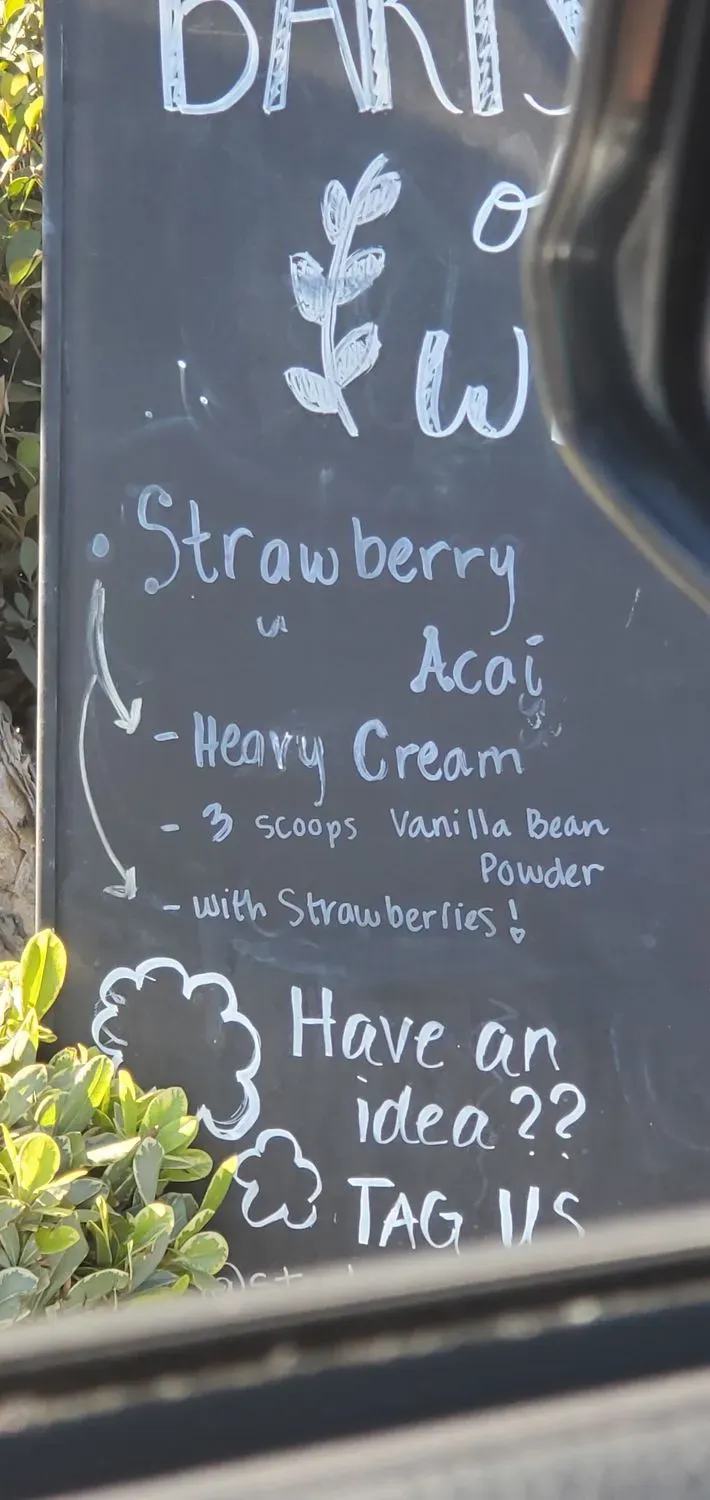 Strawberry
Acai
- Heavy Cream
- 3 scoops Vanilla Bean
Powder
- with Strawberries!
Have an
idea??
TAG US